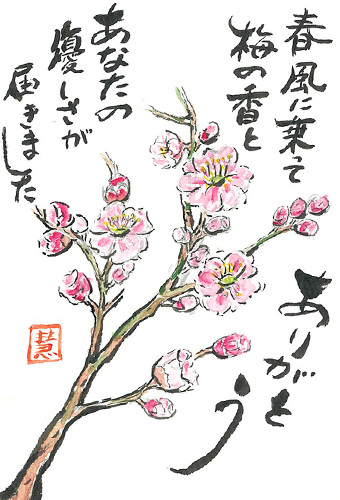 春風に乗って
梅の香と
あなたの
優しさが
届きました
ありがとう
慧